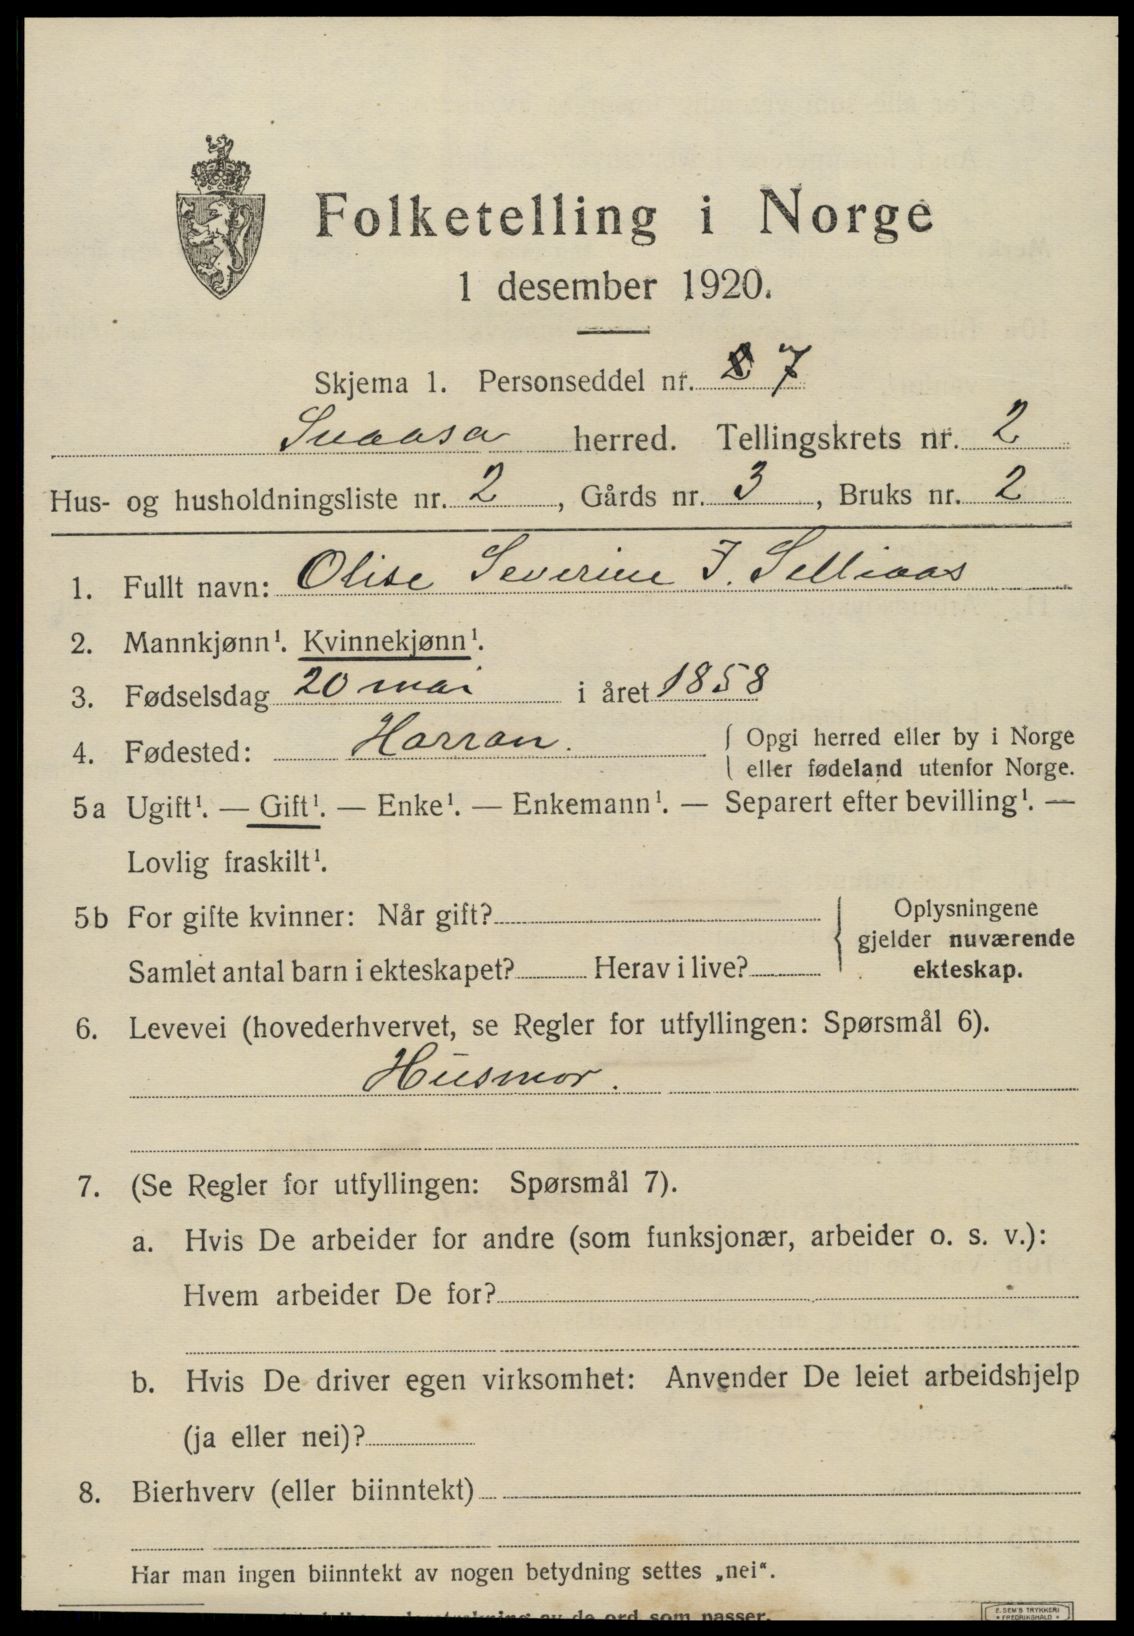 Folketelling i Norge
1 desember 1920.
Skjema 1. Personseddel nr. 7
Snaasa herred. Tellingskrets nr. 2
Hus- og husholdningsliste nr. 2, Gårds nr. 3, Bruks nr. 2
1. Fullt navn: Olise Severine J. Selliaas
2. Mannkjønn¹. Kvinnekjønn¹.
3. Fødselsdag 20 mai i året 1858
4. Fødested: Harran. { Opgi herred eller by i Norge
eller fødeland utenfor Norge.
5a Ugift¹. — Gift¹. — Enke¹. — Enkemann¹. — Separert efter bevilling¹. —
Lovlig fraskilt¹.
5b For gifte kvinner: Når gift?
Samlet antal barn i ekteskapet? Herav i live?
Oplysningene
gjelder nuværende
ekteskap.
6. Levevei (hovederhvervet, se Regler for utfyllingen: Spørsmål 6).
Husmor.
7. (Se Regler for utfyllingen: Spørsmål 7).
a. Hvis De arbeider for andre (som funksjonær, arbeider o. s. v.):
Hvem arbeider De for?
b. Hvis De driver egen virksomhet: Anvender De leiet arbeidshjelp
(ja eller nei)?
8. Bierhverv (eller biinntekt)
Har man ingen biinntekt av nogen betydning settes „nei“.
av de ord som passer.
E. SEM'S TRYKKERI
FREDRIKSHALD